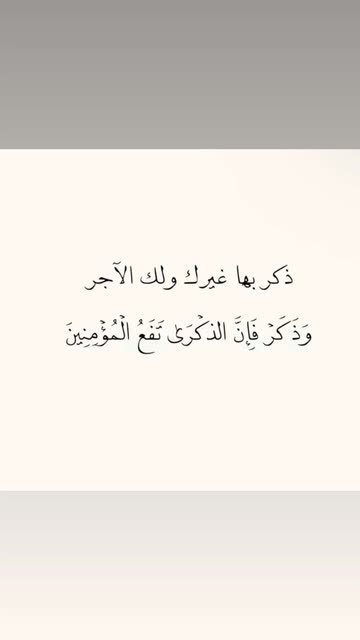 ذكر بها غيرك ولك الآجر
وَذَكَرْ فَإِنَّ الذكْرَىٰ تَفَعُ الْمُؤْمِنِينَ